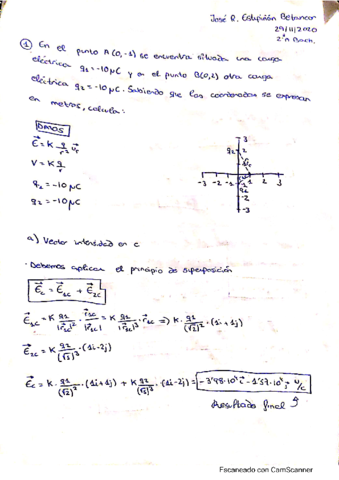 José R. Estupiñán Betancor
29/11/2020
2ºA Bach.
① En el punto A(0,-1) se encuentra situada una carga
eléctrica q₁=-10μC y en el punto B(0,2) otra carga
eléctrica q₂=-10μC. Sabiendo que las coordenadas se expresan
en metros, calcula:
DATOS
E⃗ = K q/r² u⃗r
V = K q/r
q₂ = -10 μC
q₂ = -10 μC
3
q₂ 2
-3 -2 -1 1 2 3
-2
-3
a) Vector intensidad en c
· Debemos aplicar el principio de superposición
E⃗c = E⃗1c + E⃗2c
E⃗1c = K q1/|r⃗1c|² · r⃗1c/|r⃗1c| = K q1/|r⃗1c|³ · r⃗1c ⇒ K · q1/(√2)³ · (1i+1j)
E⃗2c = K q2/(√5)³ · (1i-2j)
E⃗c = K · q1/(√2)³ · (1i+1j) + K q2/(√5)³ · (1i-2j) = -3'98·10⁴ i⃗ - 1'57·10⁴ j⃗ N/C
Resultado final
Escaneado con CamScanner